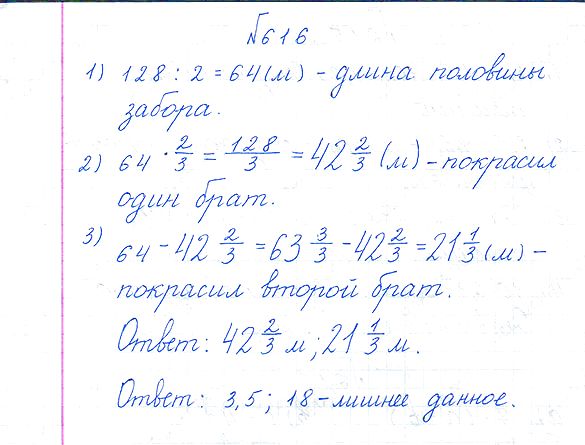 №616
1) 128 : 2 = 64 (м) - длина половины
забора.
2) 64 · 2/3 = 128/3 = 42 2/3 (м) - покрасил
один брат.
3) 64 - 42 2/3 = 63 3/3 - 42 2/3 = 21 1/3 (м) -
покрасил второй брат.
Ответ: 42 2/3 м; 21 1/3 м.
Ответ: 3,5; 18 - лишнее данное.